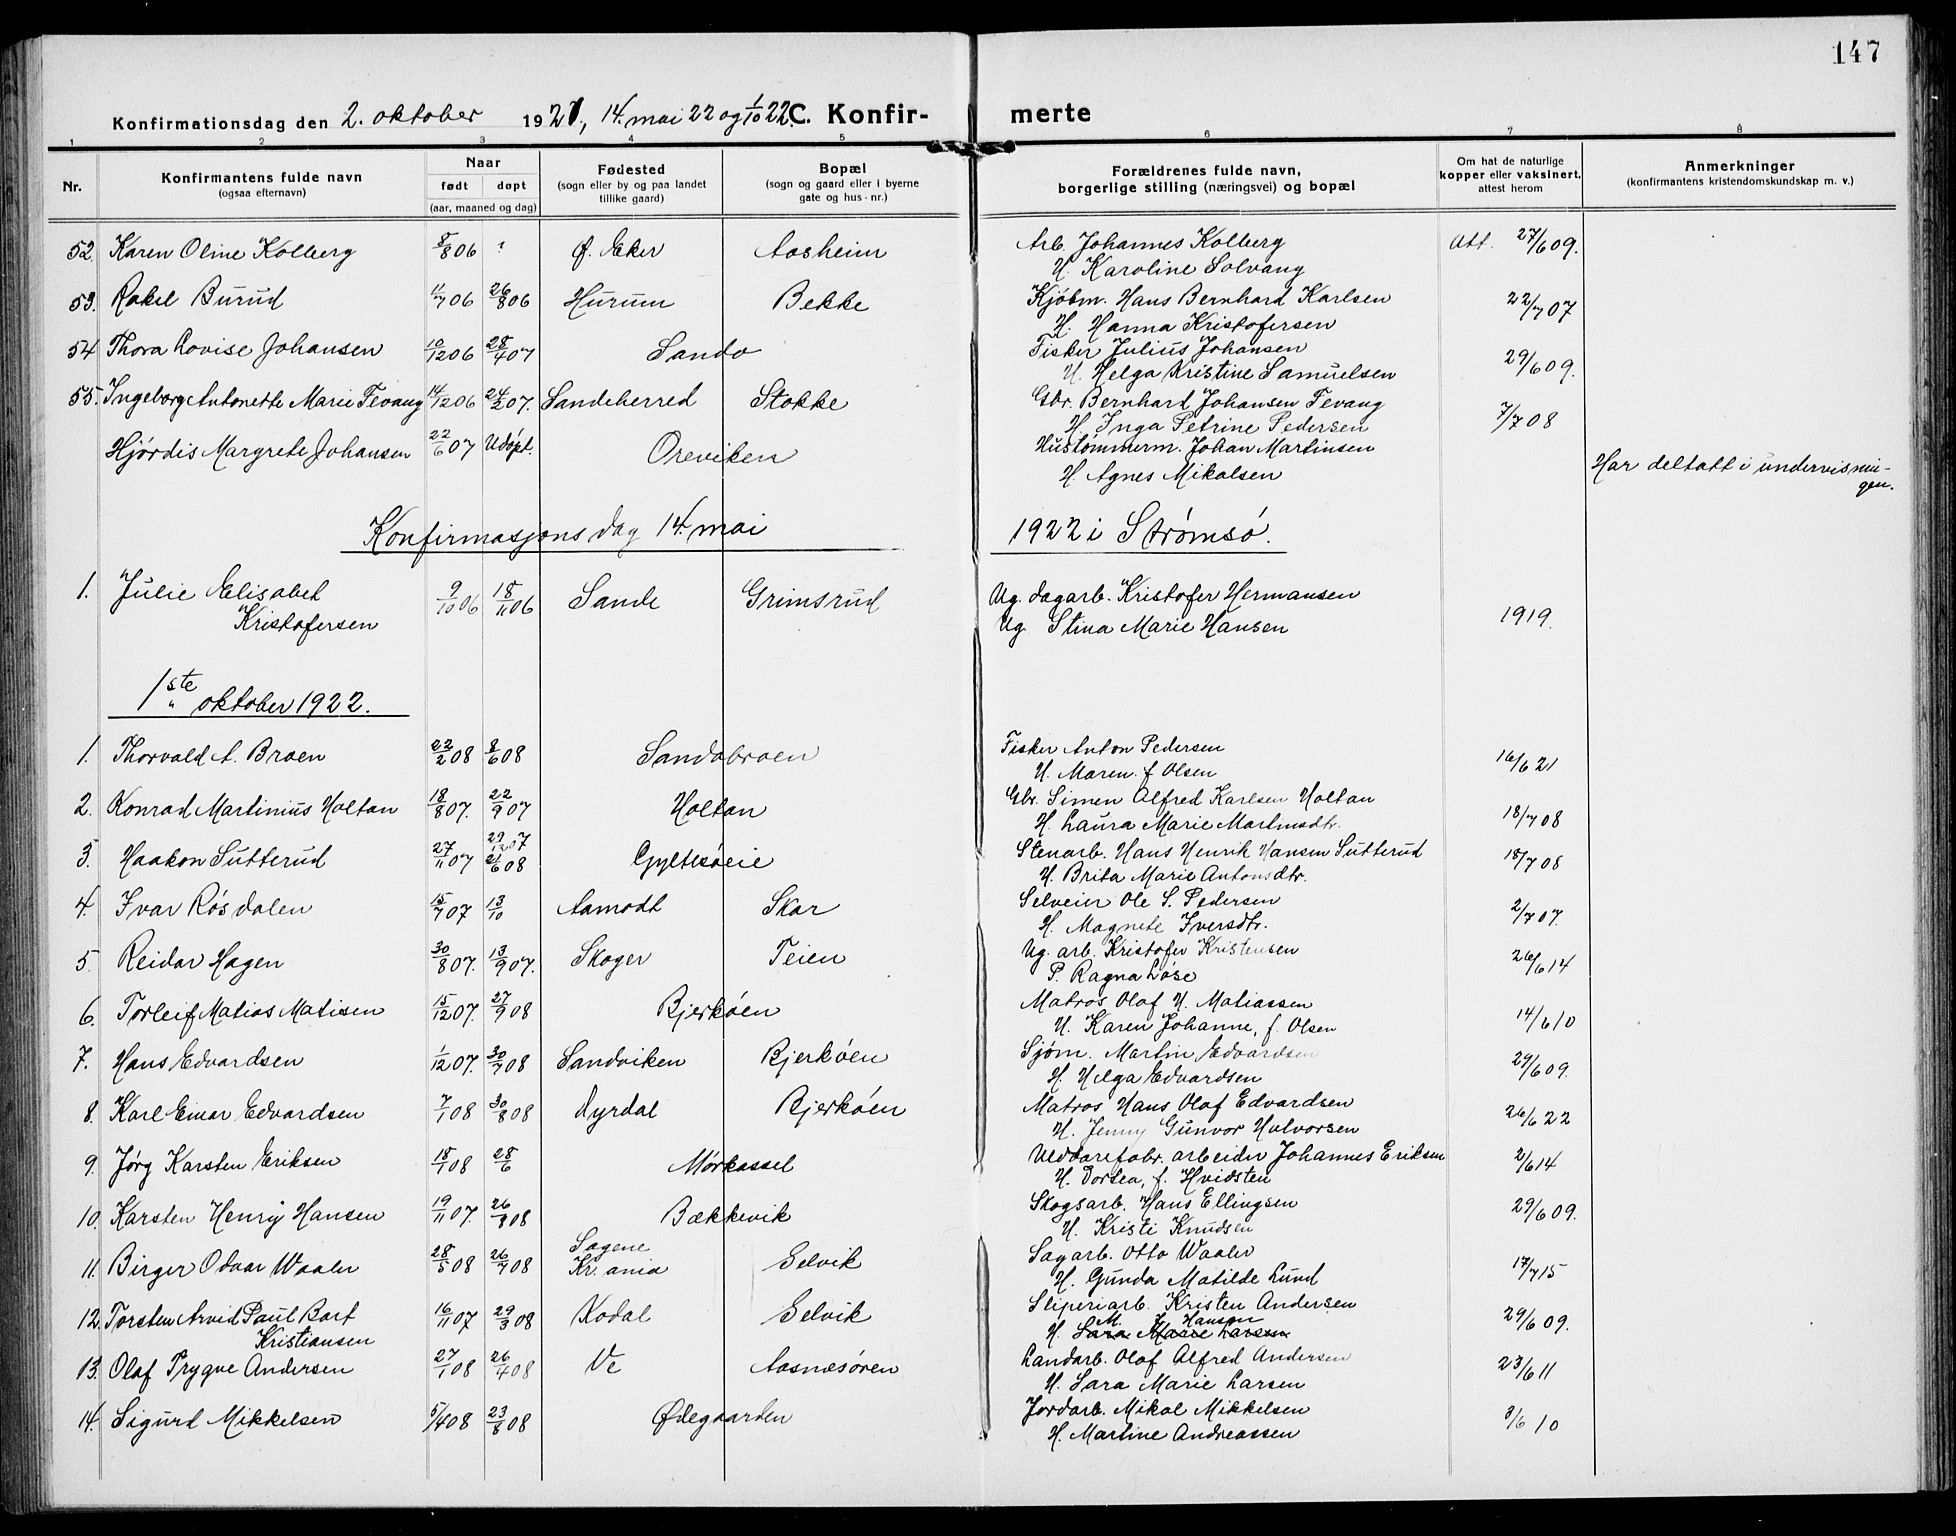 147
Konfirmationsdag den 2. oktober 1921, 14. mai 22 og 1/10 22. C. Konfir- merte
1 2 3 4 5 6 7 8
Nr. Konfirmantens fulde navn (ogsaa efternavn) Naar født døpt (aar, maaned og dag) Fødested (sogn eller by og paa landet tillike gaard) Bopæl (sogn og gaard eller i byerne gate og hus-nr.) Forældrenes fulde navn, borgerlige stilling (næringsvei) og bopæl Om hat de naturlige kopper eller vaksinert, attest herom Anmerkninger (konfirmantens kristendomskundskap m. v.)
52. Karen Oline Kolberg 8/8 06 ? Ø. Eker Aasheim Arb. Johannes Kolberg Att. 27/6 09.
H. Karoline Solvang
53. Rakel Burud 11/7 06 26/8 06 Hurum Bekke Kjøbm. Hans Bernhard Karlsen 22/7 07
H. Hanna Kristofersen
54 Thora Lovise Johansen 10/12 06 28/4 07 Sando Fisker Julius Johansen 29/6 09.
H. Helga Kristine Samuelsen
55. Ingeborg Antonette Marie Tevang 14/12 06 24/2 07. Sandeherred Stokke Gbr. Bernhard Johansen Tevang 7/7 08
H. Inga Petrine Pedersen
Hjørdis Margrete Johansen 22/6 07 Udøpt. Oreviken Hustømmerm. Johan Martinsen Har deltatt i undervisnin-
H. Agnes Mikalsen gen.
Konfirmasjonsdag 14. mai 1922 i Strømsø.
1. Julie Elisabet 9/10 06 18/11 06 Sande Grimsrud Ug. dagarb. Kristofer Hermansen 1919.
Kristofersen Ug. Stina Marie Hansen
1ste oktober 1922.
1. Thorvald A. Braen 22/2 08 8/6 08 Sandabraen Fisker Anton Pedersen 16/6 21
H. Maren f. Olsen
2. Konrad Martinius Holtan 18/8 07. 22/9 07 Holtan Gbr. Simen Alfred Karlsen Holtan 18/7 08
H. Laura Marie Martinsdtr.
3. Haakon Sutterud 27/11 07 29/12 07 21/6 08 Gyltesøeie Stenarb. Hans Henrik Hansen Sutterud 18/7 08
H. Brita Marie Antonsdtr.
4. Ivar Røsdalen 15/7 07 13/10 Aamodt Skar Selveier Ole S. Pedersen 2/7 07.
H. Magnete Iversdtr.
5. Reidar Hagen 30/8 07. 13/9 07. Skoger Teien Ug. arb. Kristofer Kristensen 26/6 14
P. Ragna Løse
6. Torleif Matias Matisen 15/12 07. 27/9 08 Bjerkøen Matros Olaf H. Matiassen 14/6 10
H. Karen Johanne, f. Olsen
7. Hans Edvardsen 1/12 07. 30/7 08 Sandviken Bjerkøen Sjøm. Martin Edvardsen 29/6 09.
H. Helga Edvardsen
8. Karl Einar Edvardsen 7/1 08 30/8 08 Dyrdal Bjerkøen Matros Hans Olaf Edvardsen 26/6 22
H. Jenny Gunvor Halvorsen
9. Jørg Karsten Eriksen 18/1 08 28/6 Mørkassel Uldvarefabr. arbeider Johannes Eriksen 2/6 14
H. Dortea, f. Hvidsten
10. Karsten Henry Hansen 19/11 07. 26/8 08 Bækkevik Skogsarb. Hans Ellingsen 29/6 09.
H. Kristi Knudsen
11. Birger Odvar Waaler 28/5 08 26/7 08 Sagene Kr.ania Selvik Sagarb. Otto Waaler 17/7 15
H. Gunda Matilde Lund
12. Torsten Arvid Paul Bart 16/11 07 29/3 08 Kodal Selvik Sliperiarb. Kristen Andersen 29/6 09.
Kristiansen H. M. f. Hansen Sara Marie Larsen
13. Olaf Trygve Andersen 27/1 08 26/4 08 Ve Aasnæsøren Landarb. Olaf Alfred Andersen 23/6 11
H. Sara Marie Larsen
14. Sigurd Mikkelsen 5/4 08 23/8 08 Ødegaarden Jordarb. Mikal Mikkelsen 3/6 10
H. Martine Andreassen